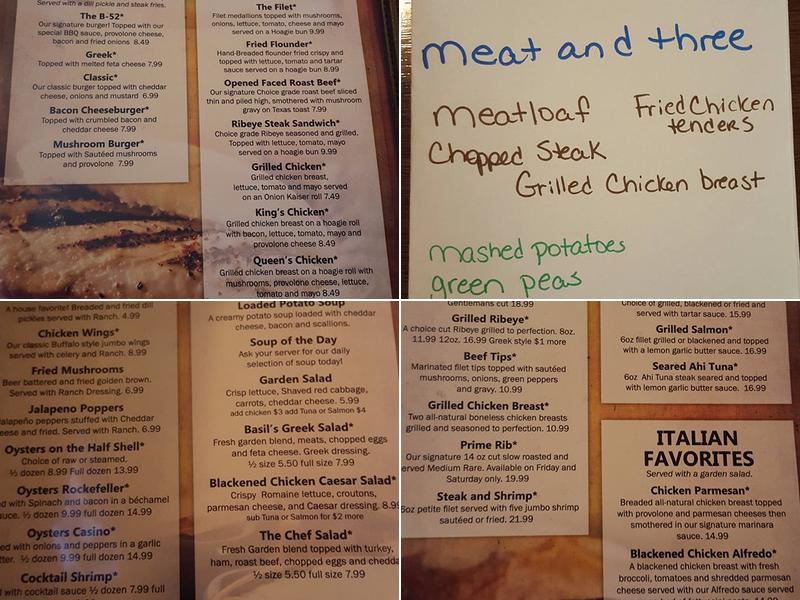 Served with a dill pickle and steak fries.
The B-52*
Our signature burger! Topped with our
special BBQ sauce, provolone cheese,
bacon and fried onions 8.49
Greek*
Topped with melted feta cheese 7.99
Classic*
Our classic burger topped with cheddar
cheese, onions and mustard 6.99
Bacon Cheeseburger*
Topped with crumbled bacon and
cheddar cheese 7.99
Mushroom Burger*
Topped with Sautéed mushrooms
and provolone 7.99
The Filet*
Filet medallions topped with mushrooms,
onions, lettuce, tomato, cheese and mayo
served on a Hoagie bun 9.99
Fried Flounder*
Hand-Breaded flounder fried crispy and
topped with lettuce, tomato and tartar
sauce served on a hoagie bun 8.99
Opened Faced Roast Beef*
Our signature Choice grade roast beef sliced
thin and piled high, smothered with mushroom
gravy on Texas toast 7.99
Ribeye Steak Sandwich*
Choice grade Ribeye seasoned and grilled.
Topped with lettuce, tomato, mayo
served on a hoagie bun 9.99
Grilled Chicken*
Grilled chicken breast,
lettuce, tomato and mayo served
on an Onion Kaiser roll 7.49
King's Chicken*
Grilled chicken breast on a hoagie roll
with bacon, lettuce, tomato, mayo and
provolone cheese 8.49
Queen's Chicken*
Grilled chicken breast on a hoagie roll with
mushrooms, provolone cheese, lettuce,
tomato and mayo 8.49
meat and three
meatloaf
Fried Chicken
tenders
Chopped Steak
Grilled Chicken breast
mashed potatoes
green peas
A house favorite! Breaded and fried dill
pickles served with Ranch. 4.99
Chicken Wings*
Our classic Buffalo style jumbo wings
served with celery and Ranch. 8.99
Fried Mushrooms
Beer battered and fried golden brown.
Served with Ranch Dressing. 6.99
Jalapeno Poppers
Jalapeño peppers stuffed with Cheddar
cheese and fried. Served with Ranch. 6.99
Oysters on the Half Shell*
Choice of raw or steamed.
½ dozen 8.99 Full dozen 13.99
Oysters Rockefeller*
with Spinach and bacon in a béchamel
sauce. ½ dozen 9.99 full dozen 14.99
Oysters Casino*
with onions and peppers in a garlic
½ dozen 9.99 full dozen 14.99
Cocktail Shrimp*
with cocktail sauce ½ dozen 7.99 full
Loaded Potato Soup
A creamy potato soup loaded with cheddar
cheese, bacon and scallions.
Soup of the Day
Ask your server for our daily
selection of soup today!
Garden Salad
Crisp lettuce, Shaved red cabbage,
carrots, cheddar cheese. 5.99
add chicken $3 add Tuna or Salmon $4
Basil's Greek Salad*
Fresh garden blend, meats, chopped eggs
and feta cheese. Greek dressing.
½ size 5.50 full size 7.99
Blackened Chicken Caesar Salad*
Crispy Romaine lettuce, croutons,
parmesan cheese, and Caesar dressing. 8.99
sub Tuna or Salmon for $2 more
The Chef Salad*
Fresh Garden blend topped with turkey,
ham, roast beef, chopped eggs and cheddar
½ size 5.50 full size 7.99
Gentlemans cut 18.99
Grilled Ribeye*
A choice cut Ribeye grilled to perfection. 8oz.
11.99 12oz. 16.99 Greek style $1 more
Beef Tips*
Marinated filet tips topped with sautéed
mushrooms, onions, green peppers
and gravy. 10.99
Grilled Chicken Breast*
Two all-natural boneless chicken breasts
grilled and seasoned to perfection. 10.99
Prime Rib*
Our signature 14 oz cut slow roasted and
served Medium Rare. Available on Friday and
Saturday only. 19.99
Steak and Shrimp*
8oz petite filet served with five jumbo shrimp
sautéed or fried. 21.99
Choice of grilled, blackened or fried and
served with tartar sauce. 15.99
Grilled Salmon*
6oz fillet grilled or blackened and topped
with a lemon garlic butter sauce. 16.99
Seared Ahi Tuna*
6oz Ahi Tuna steak seared and topped
with lemon garlic butter sauce. 16.99
ITALIAN
FAVORITES
Served with a garden salad.
Chicken Parmesan*
Breaded all-natural chicken breast topped
with provolone and parmesan cheeses then
smothered in our signature marinara
sauce. 14.99
Blackened Chicken Alfredo*
A blackened chicken breast with fresh
broccoli, tomatoes and shredded parmesan
cheese served with our Alfredo sauce served